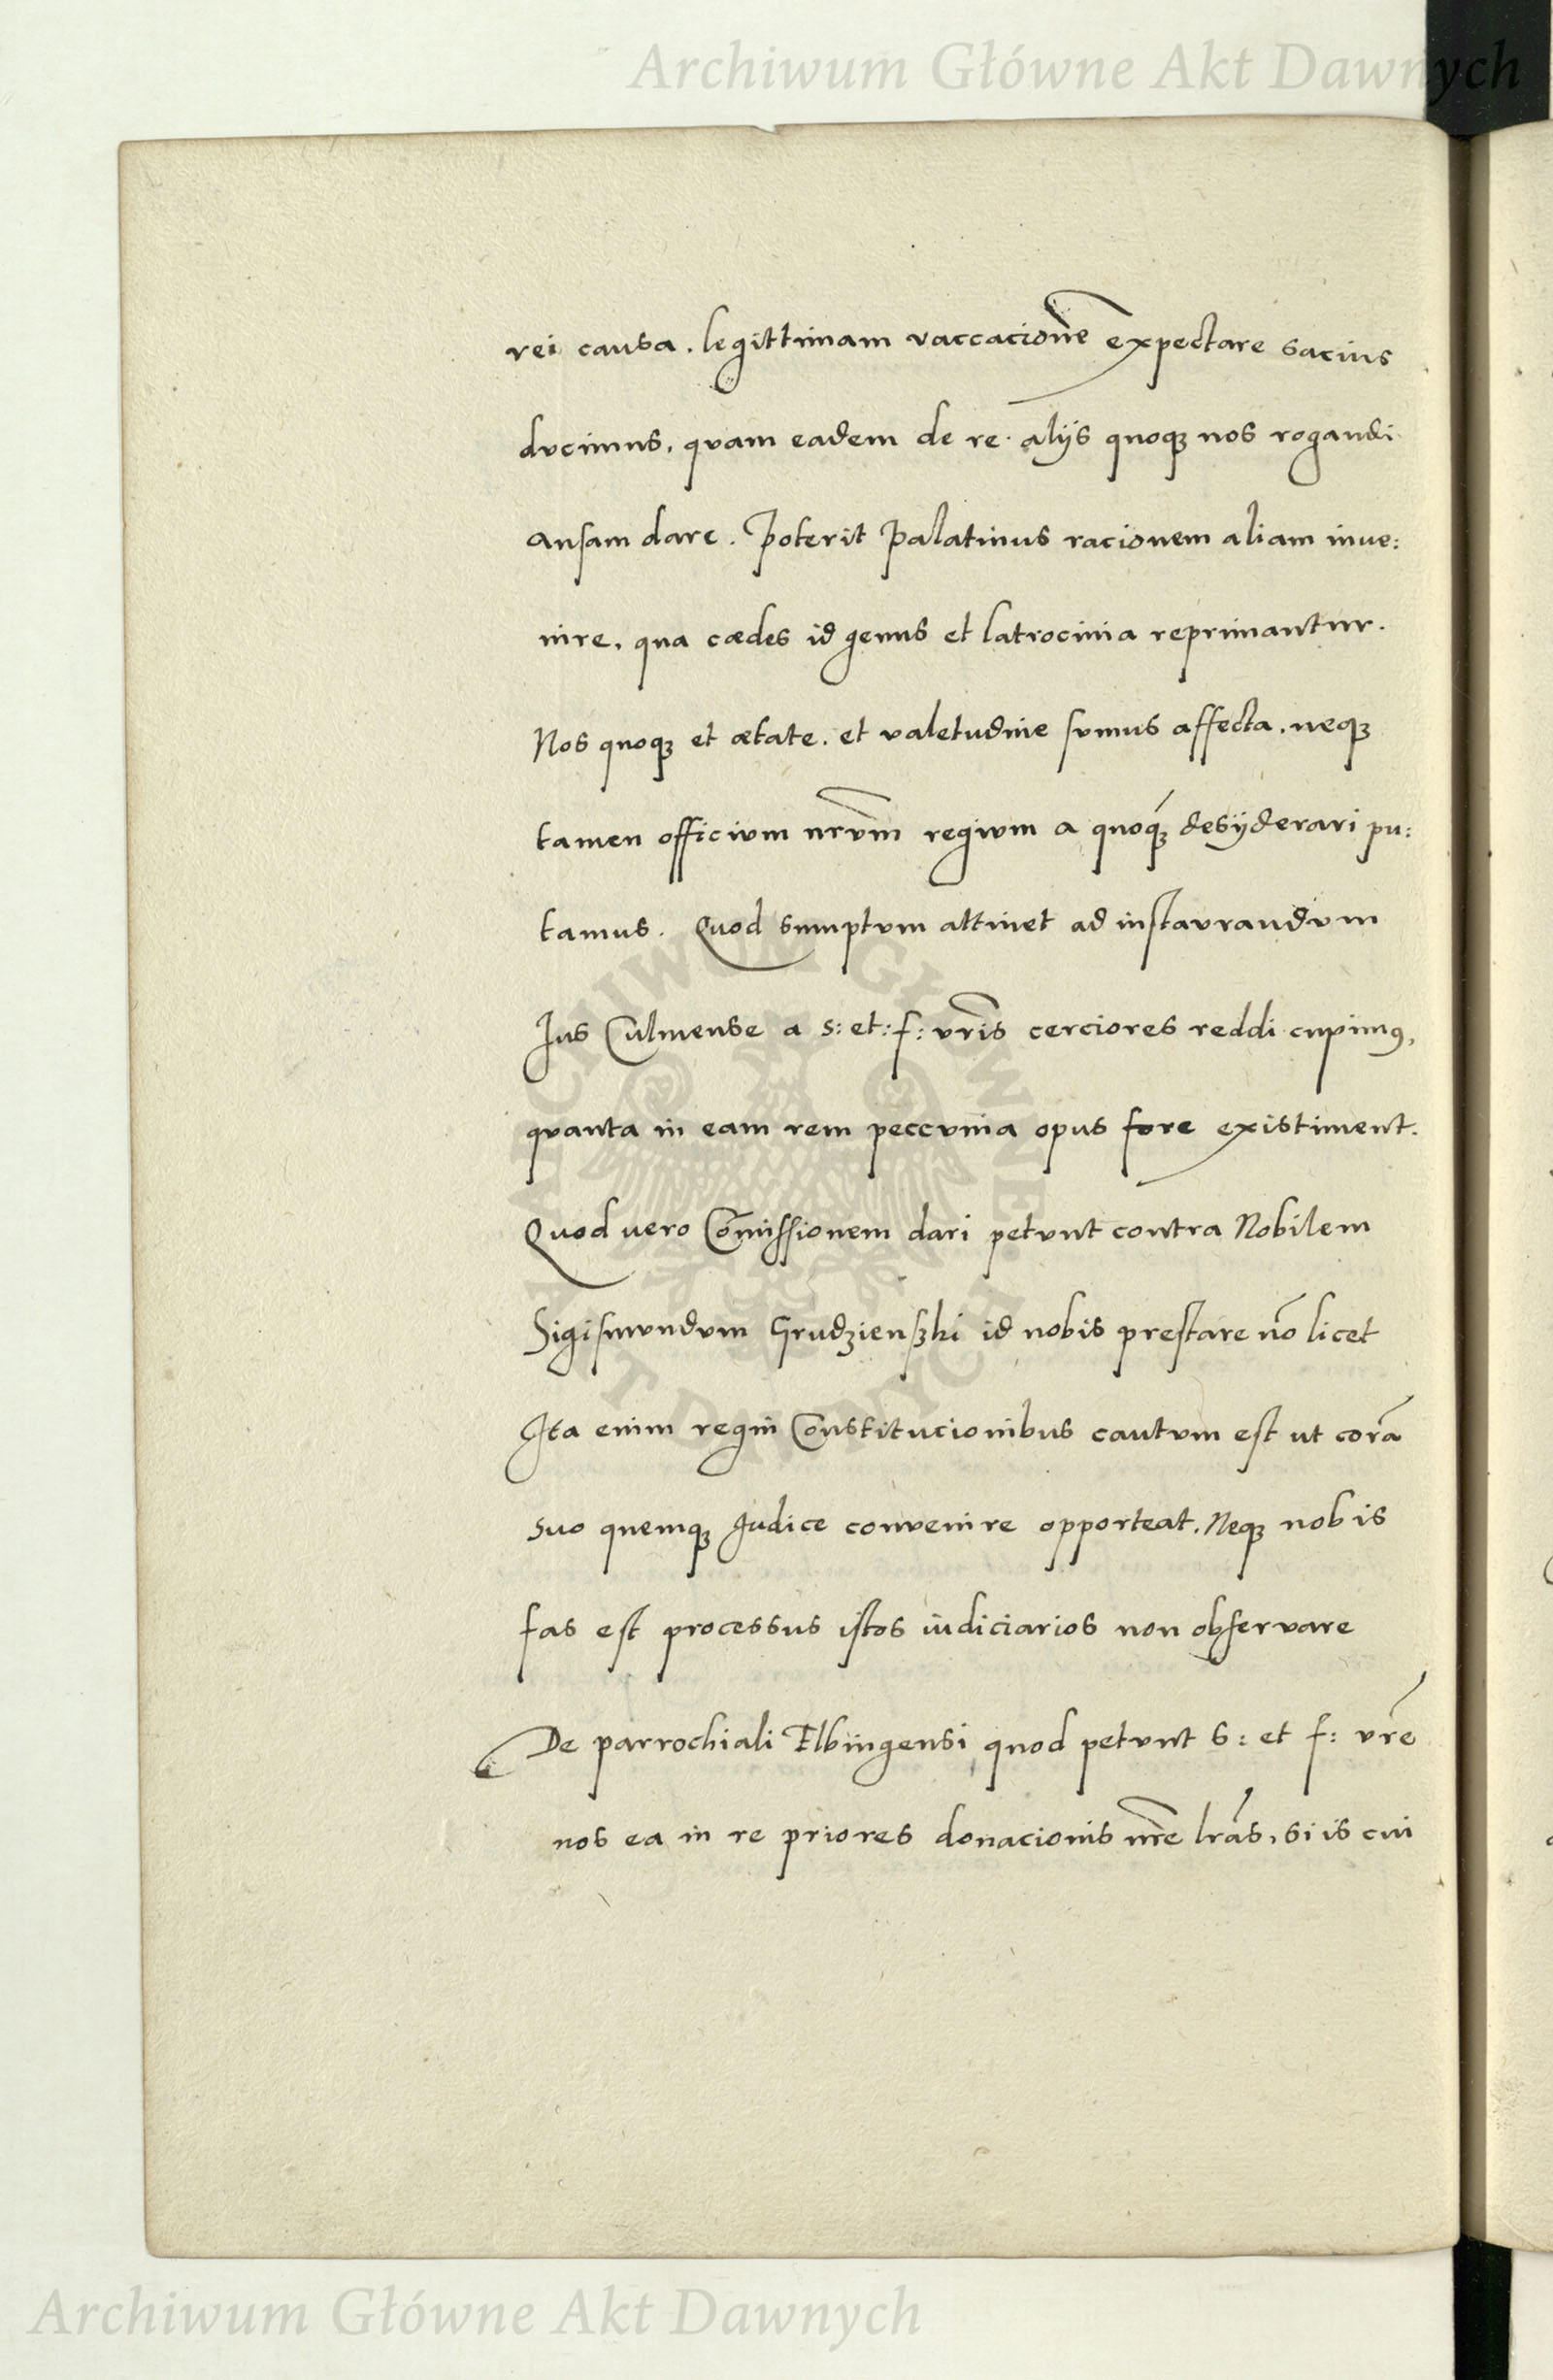 Archiwum Główne Akt Dawnych
rei causa. legittimam vaccacionē expectare sacius
dvcimus, qvam eadem de re. alijs quoqȝ nos rogandi
ansam dare. Poterit Palatinus racionem aliam inue:
nire, qua cædes id genus et latrocinia reprimantur.
Nos quoqȝ et ætate. et valetudine svmus affecta. neqȝ
tamen officivm nrv̄m regivm a quoqȝ desyderari pu:
tamus. Qvod sumptvm attinet ad instavrandvm
Ius Culmense a s: et: f: vrīs cerciores reddi cupimꝰ,
qvanta in eam rem peccvnia opus fore existiment.
Qvod vero Cōmissionem dari petvnt contra Nobilem
Sigismvndvm Grudzienszki id nobis prestare nō licet
Ita enim regni Constitucionibus cautvm est ut corā
suo quemqȝ Iudice convenire opporteat. Neqȝ nobis
fas est processus istos iudiciarios non observare
De parrochiali Elbingensi quod petvnt s: et f: vrē
nos ea in re priores donacionis nrē lrās, si is cui
ARCHIWUM GŁÓWNE AKT DAWNYCH
Archiwum Główne Akt Dawnych